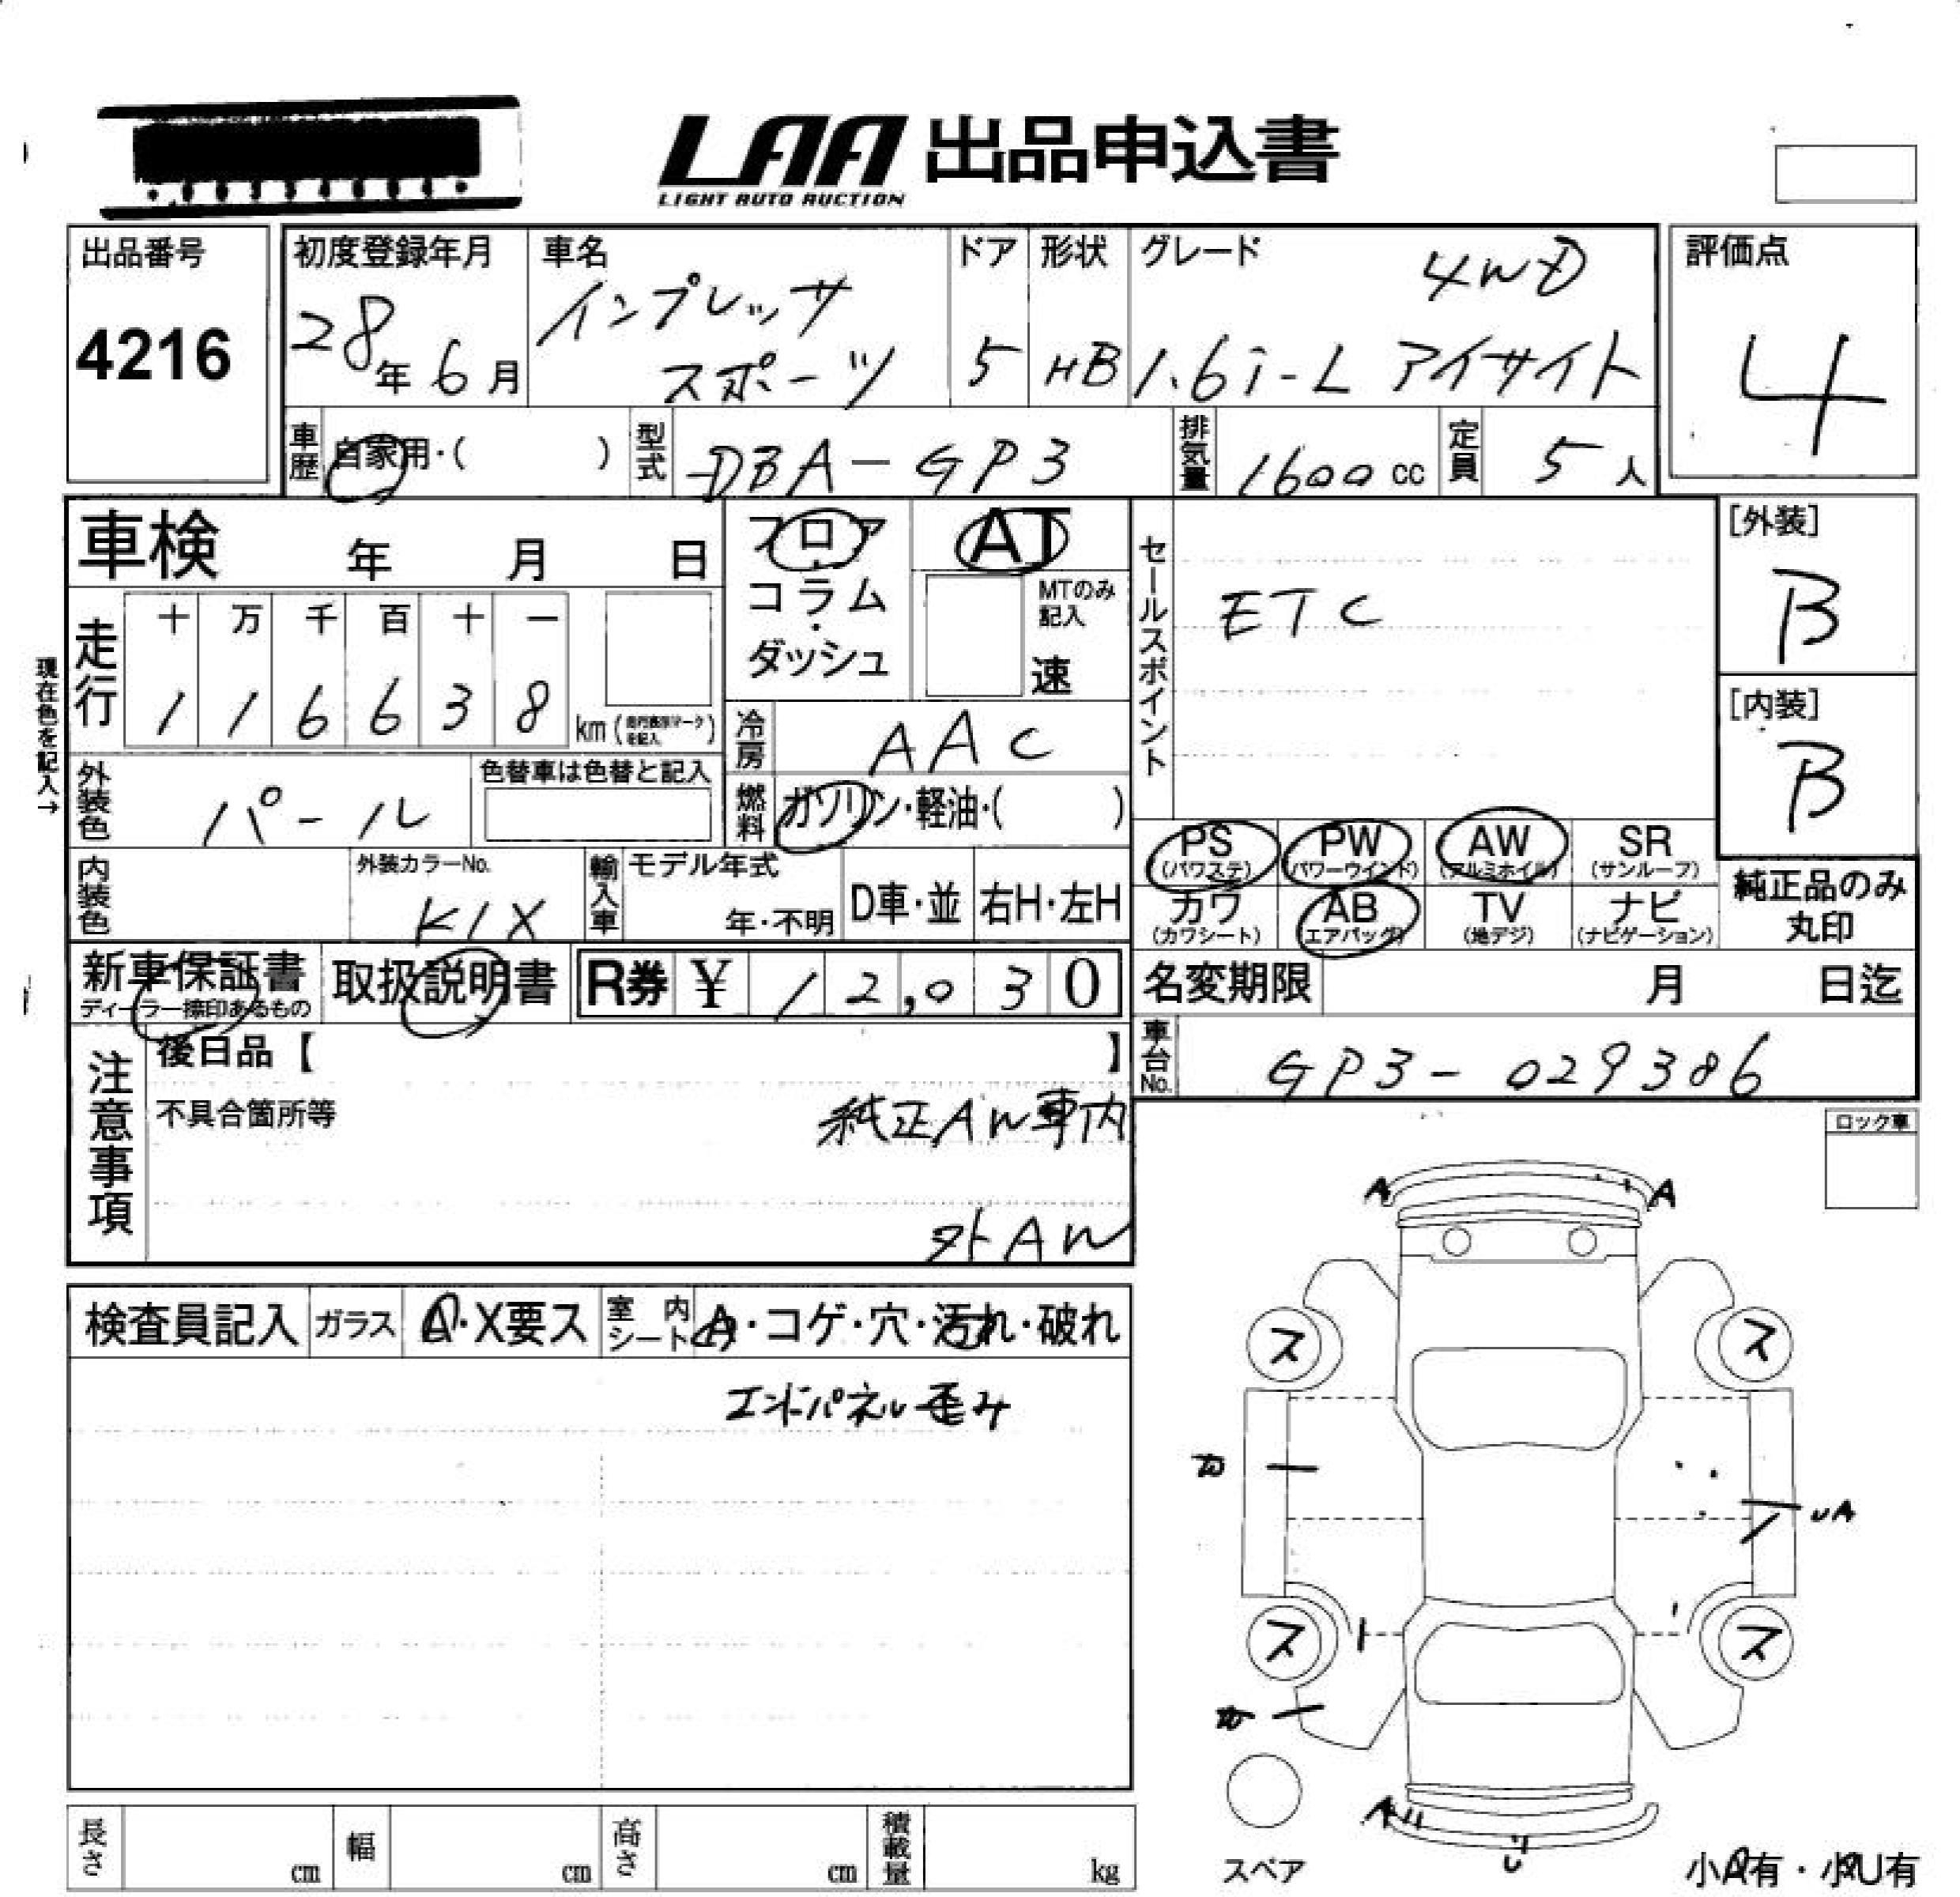 LAA 出品申込書
LIGHT AUTO AUCTION
出品番号
4216
初度登録年月
28年6月
車名
インプレッサ
スポーツ
ドア
5
形状
HB
グレード
4WD
1.6i-L アイサイト
評価点
4
車歴 自家用・( )
型式 DBA-GP3
排気量 1600cc
定員 5人
車検 年 月 日
フロア
コラム
・
ダッシュ
AT
MTのみ
記入
速
セールスポイント
ETC
[外装]
B
[内装]
B
現在色を記入→
走行
十 万 千 百 十 一
1 1 6 6 3 8 km
冷房 AAC
外装色 パール
色替車は色替と記入
燃料 ガソリン・軽油・( )
PS PW AW SR
(パワステ) (パワーウインド) (アルミホイル) (サンルーフ)
カワ AB TV ナビ
(カワシート) (エアバッグ) (地デジ) (ナビゲーション)
純正品のみ
丸印
内装色
外装カラーNo.
K1X
輸入車
モデル年式
年・不明
D車・並
右H・左H
新車保証書
ディーラー捺印あるもの
取扱説明書
R券 ¥ 12,030
名変期限 月 日迄
車台No. GP3-029386
注意事項
後日品【 】
不具合箇所等
純正AW車内
外AW
ロック車
検査員記入
ガラス A・X要ス
室内シート A・コゲ・穴・汚れ・破れ
エンドパネル歪み
A A
ス ス
カ
UA
ス ス
カ
A
U
スペア
小A有・小U有
長さ cm
幅 cm
高さ cm
積載量 kg